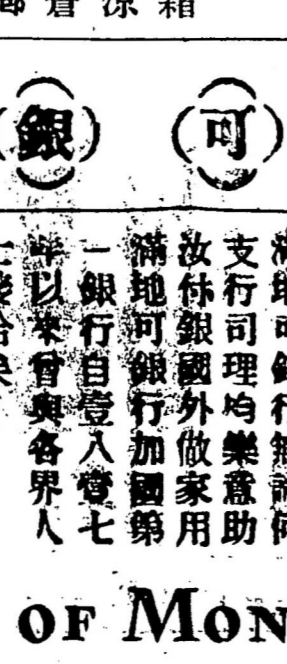 郵倉凉箱
可銀
滿地可銀行無論何
支行司理均樂意助
汝付銀國外做家用
滿地可銀行加國第
一銀行自壹八壹七
年以來曾與各界人
OF MON